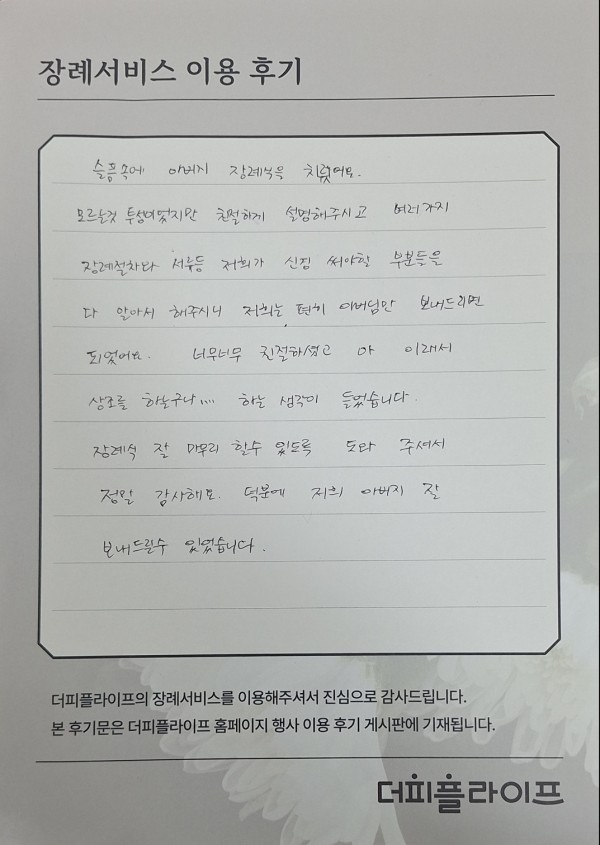 장례서비스 이용 후기
슬픔속에 아버지 장례식을 치렀어요.
모르는것 투성이였지만 친절하게 설명해주시고 여러가지
장례절차나 서류등 저희가 신경 써야할 부분들을
다 알아서 해주시니 저희는 편히 아버님만 보내드리면
되었어요. 너무너무 친절하셨고 아 이래서
상조를 하는구나.... 하는 생각이 들었습니다.
장례식 잘 마무리 할수 있도록 도와 주셔서
정말 감사해요. 덕분에 저희 아버지 잘
보내드릴수 있었습니다.
더피플라이프의 장례서비스를 이용해주셔서 진심으로 감사드립니다.
본 후기문은 더피플라이프 홈페이지 행사 이용 후기 게시판에 기재됩니다.
더피플라이프